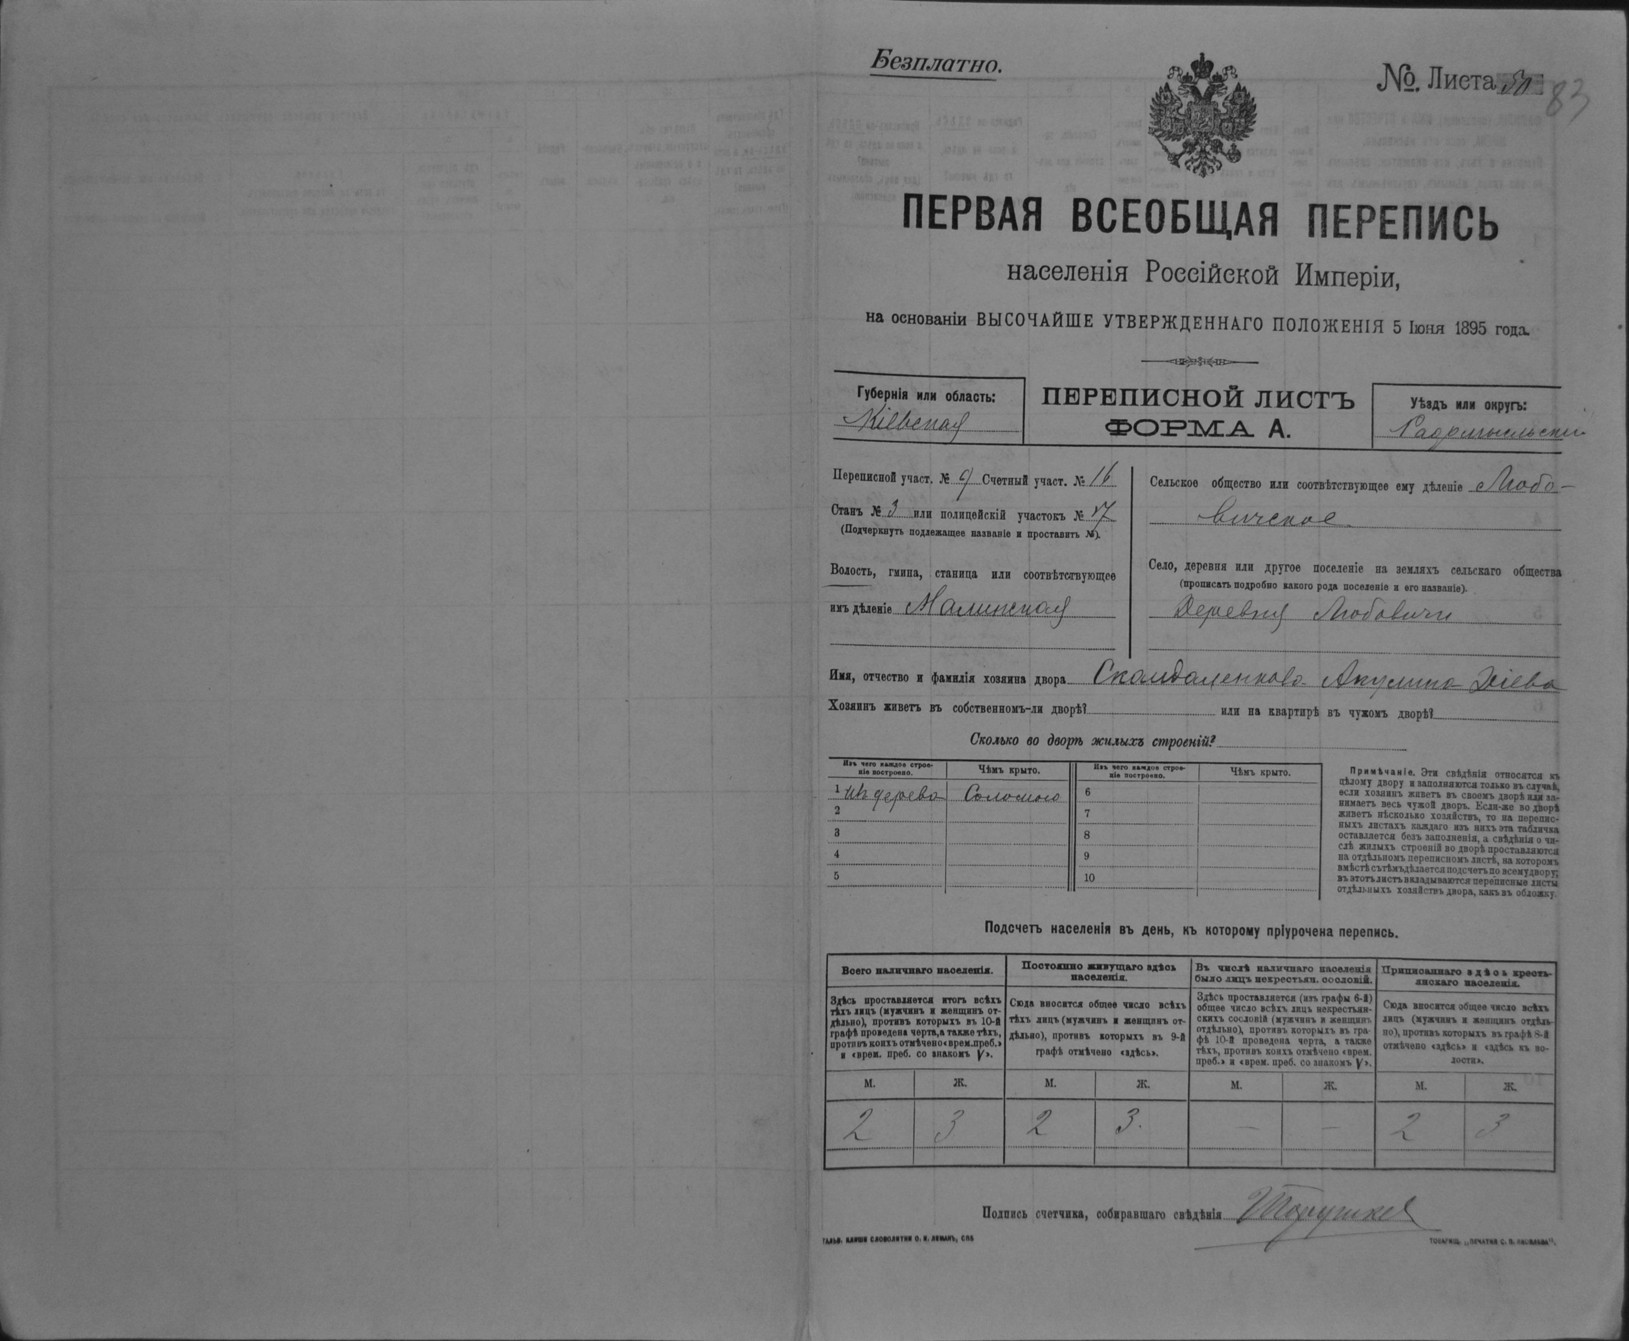 Безплатно.
№. Листа 50
83
ПЕРВАЯ ВСЕОБЩАЯ ПЕРЕПИСЬ
населенія Россійской Имперіи,
на основаніи ВЫСОЧАЙШЕ УТВЕРЖДЕННАГО ПОЛОЖЕНІЯ 5 Іюня 1895 года.
Губернія или область:
Кіевская
ПЕРЕПИСНОЙ ЛИСТЪ
ФОРМА А.
Уѣздъ или округъ:
Радомысльскій
Переписной участ. № 9 Счетный участ. № 16
Станъ № 3 или полицейскій участокъ № 7
(Подчеркнуть подлежащее названіе и проставить №).
Волость, гмина, станица или соотвѣтствующее
имъ дѣленіе Малинская
Сельское общество или соотвѣтствующее ему дѣленіе Любо-
вичское
Село, деревня или другое поселеніе на земляхъ сельскаго общества
(прописать подробно какого рода поселеніе и его названіе).
Деревня Любовичи
Имя, отчество и фамилія хозяина двора Скалдаленкова Акулина
Хозяинъ живетъ въ собственномъ-ли дворѣ? или на квартирѣ въ чужомъ дворѣ?
Сколько во дворѣ жилыхъ строеній?
Изъ чего каждое строе-
ніе построено.
Чѣмъ крыто.
Изъ чего каждое строе-
ніе построено.
Чѣмъ крыто.
1 изъ дерева Соломою
2
3
4
5
6
7
8
9
10
Примѣчаніе. Эти свѣдѣнія относятся къ
цѣлому двору и заполняются только въ случаѣ,
если хозяинъ живетъ въ своемъ дворѣ или за-
нимаетъ весь чужой дворъ. Если-же во дворѣ
живетъ нѣсколько хозяйствъ, то на перепис-
ныхъ листахъ каждаго изъ нихъ эта табличка
оставляется безъ заполненія, а свѣдѣнія о чи-
слѣ жилыхъ строеній во дворѣ проставляются
на отдѣльномъ переписномъ листѣ, на которомъ
вмѣстѣ съ тѣмъ дѣлается подсчетъ по всему двору;
въ этотъ листъ вкладываются переписные листы
отдѣльныхъ хозяйствъ двора, какъ въ обложку.
Подсчетъ населенія въ день, къ которому пріурочена перепись.
Всего наличнаго населенія.
Здѣсь проставляется итогъ всѣхъ
тѣхъ лицъ (мужчинъ и женщинъ от-
дѣльно), противъ которыхъ въ 10-й
графѣ проведена черта, а также тѣхъ,
противъ коихъ отмѣчено «врем. преб.»
и «врем. преб. со знакомъ V».
Постоянно живущаго здѣсь
населенія.
Сюда вносится общее число всѣхъ
тѣхъ лицъ (мужчинъ и женщинъ от-
дѣльно), противъ которыхъ въ 9-й
графѣ отмѣчено «здѣсь».
Въ числѣ наличнаго населенія
было лицъ некрестьян. сословій.
Здѣсь проставляется (изъ графы 6-й)
общее число всѣхъ лицъ некрестьян-
скихъ сословій (мужчинъ и женщинъ
отдѣльно), противъ которыхъ въ гра-
фѣ 10-й проведена черта, а также
тѣхъ, противъ коихъ отмѣчено «врем.
преб.» и «врем. преб. со знакомъ V».
Приписаннаго здѣсь кресть-
янскаго населенія.
Сюда вносится общее число всѣхъ
лицъ (мужчинъ и женщинъ отдѣль-
но), противъ которыхъ въ графѣ 8-й
отмѣчено «здѣсь» и «здѣсь къ во-
лости».
М. Ж. М. Ж. М. Ж. М. Ж.
2 3 2 3. — — 2 3
Подпись счетчика, собиравшаго свѣдѣнія
ГАЛЬВ. КЛИШЕ СЛОВОЛИТНИ О. И. ЛЕМАНЪ, СПБ
ТОВАРИЩ. „ПЕЧАТНЯ С. П. ЯКОВЛЕВА".